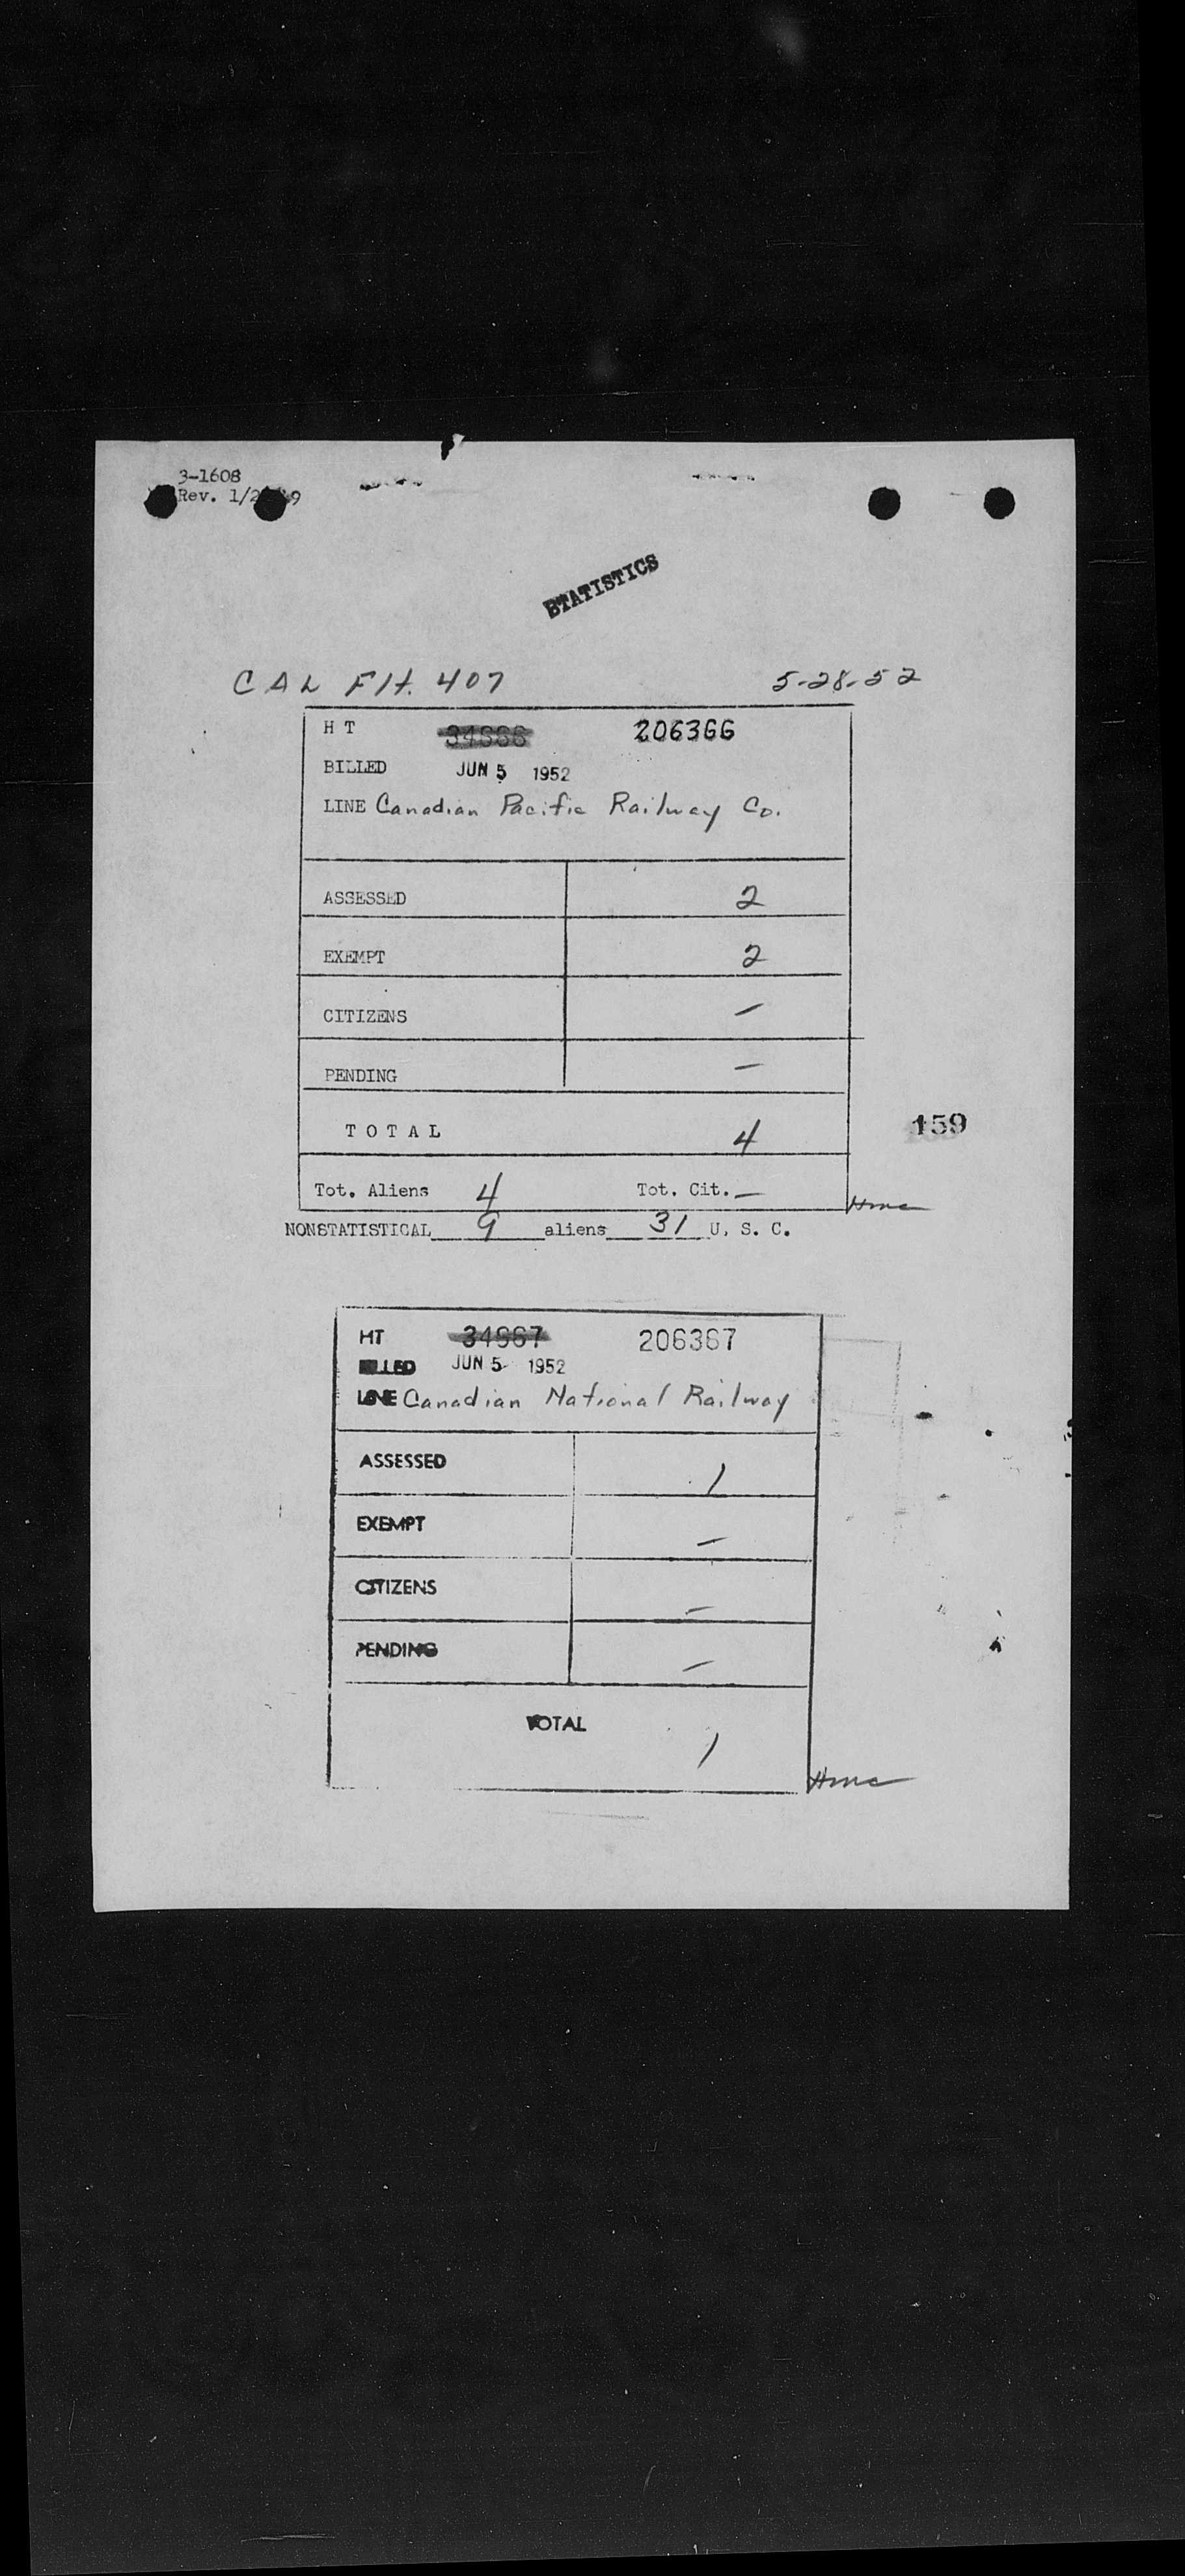 3-1608
Rev. 1/2 9
STATISTICS
CAL Flt. 407 5-28-52
H T 34966 206366
BILLED JUN 5 1952
LINE Canadian Pacific Railway Co.
ASSESSED 2
EXEMPT 2
CITIZENS —
PENDING —
TOTAL 4
159
Tot. Aliens 4 Tot. Cit. —
Hmc
NONSTATISTICAL 9 aliens 31 U. S. C.
HT 34967 206367
BILLED JUN 5 1952
LINE Canadian National Railway
ASSESSED 1
EXEMPT —
CITIZENS —
PENDING —
TOTAL 1
Hmc